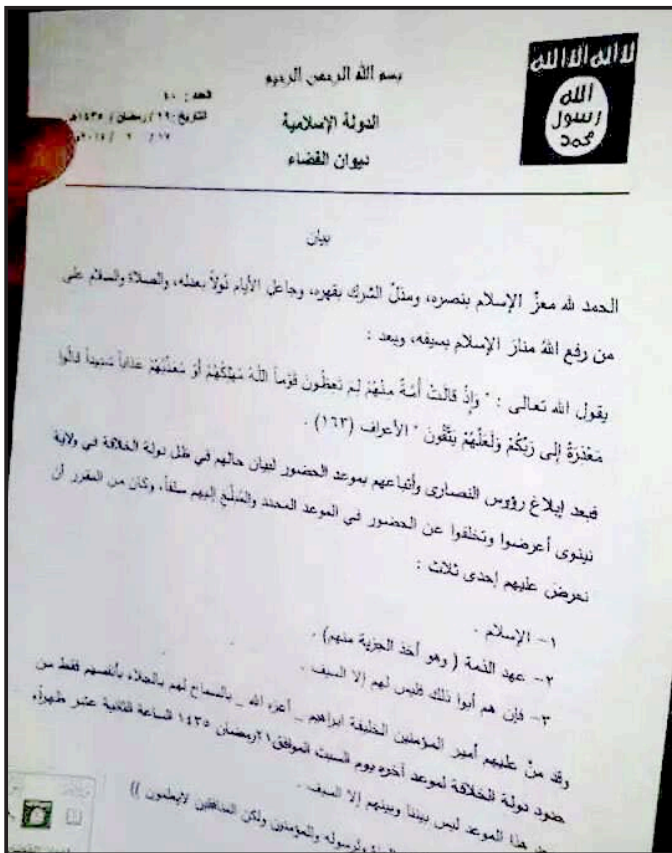 لا اله الا الله
الله
رسول
محمد
بسم الله الرحمن الرحيم
العدد : ٤٠
الدولة الإسلامية
التاريخ : ١٩ / رمضان / ١٤٣٥هـ
ديوان القضاء
بيان
الحمد لله معزِّ الإسلام بنصره، ومذلِّ الشرك بقهره، وجاعل الأيام دُولاً بعدله، والصلاة والسلام على
من رفع اللهُ منارَ الإسلام بسيفه، وبعد :
يقول الله تعالى : " وَإِذْ قَالَتْ أُمَّةٌ مِنْهُمْ لِمَ تَعِظُونَ قَوْماً اللَّهُ مُهْلِكُهُمْ أَوْ مُعَذِّبُهُمْ عَذَاباً شَدِيداً قَالُوا
مَعْذِرَةً إِلَى رَبِّكُمْ وَلَعَلَّهُمْ يَتَّقُونَ " الأعراف (١٦٣) .
فبعد إبلاغ رؤوس النصارى وأتباعهم بموعد الحضور لبيان حالهم في ظل دولة الخلافة في ولاية
نينوى أعرضوا وتخلفوا عن الحضور في الموعد المحدد والمُبلَّغ إليهم سلفاً، وكان من المقرر أن
نعرض عليهم إحدى ثلاث :
١- الإسلام .
٢- عهد الذمة ( وهو أخذ الجزية منهم) .
٣- فإن هم أبوا ذلك فليس لهم إلا السيف .
وقد منَّ عليهم أمير المؤمنين الخليفة ابراهيم _ أعزه الله _ بالسماح لهم بالجلاء بأنفسهم فقط من
حدود دولة الخلافة لموعد آخره يوم السبت الموافق ٢١رمضان ١٤٣٥ الساعة الثانية عشر ظهراً،
هذا الموعد ليس بيننا وبينهم إلا السيف .
ولرسوله وللمؤمنين ولكن المنافقين لايعلمون ))